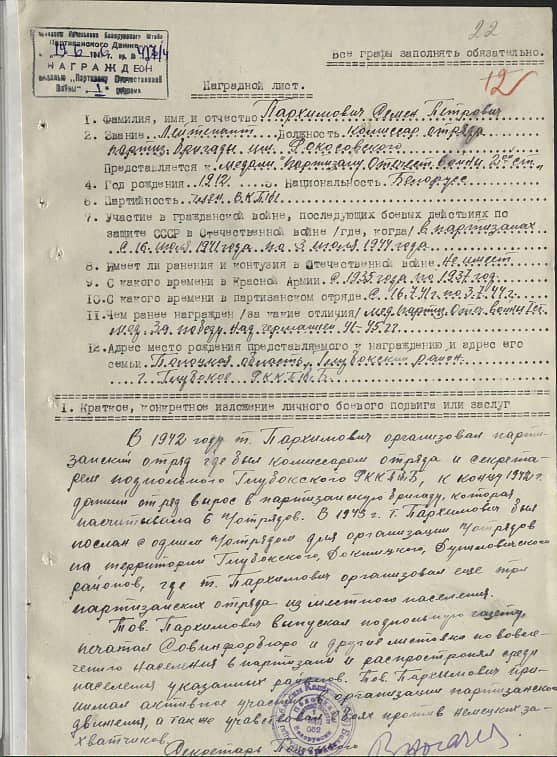 22
12
Партизанского Движения
19 6 г. пр. № 407/4
НАГРАЖДЕН
медалью „Партизану Отечественной
Войны" I степени
Все графы заполнять обязательно.
Наградной лист.
1. Фамилия, имя и отчество Пархимович Семен Петрович
2. Звание Лейтенант Должность комиссар отряда
партиз. бригады им. Рокосовского
Представляется к медали "партизану Отечест. войны 2ой ст."
4. Год рождения 1912 5. Национальность Белорус
6. Партийность член ВКП/б/
7. Участие в гражданской войне, последующих боевых действиях по
защите СССР в Отечественной войне /где, когда/ в партизанах
с 16 июля 1941 года по 3 июля 1944 года
8. Имеет ли ранения и контузия в Отечественной войне Не имеет
9. С какого времени в Красной Армии. с 1935 года по 1937 год.
10. С какого времени в партизанском отряде. с 16.7.41 г. по 3.7.44 г.
11. Чем ранее награжден /за какие отличия/ мед. партиз. Отеч. войны
мед. За победу над германией 41-45 гг.
12. Адрес место рождения представляемого к награждению и адрес его
семьи Полоцкая область, Глубокский район
г. Глубокое РККП/б/Б
I. Краткое, конкретное изложение личного боевого подвига или заслуг
В 1942 году т. Пархимович организовал парти-
занский отряд где был комиссаром отряда и секрета-
рем подпольного Глубокского РККП/б/Б, к концу 1942 г.
данный отряд вырос в партизанскую бригаду, которая
насчитывала 6 п/отрядов. В 1943 г. т. Пархимович был
послан с одним п/отрядом для организации п/отрядов
на территории Глубокского, Докшицкого, Дуниловичского
районов, где т. Пархимович организовал еще три
партизанских отряда из местного населения.
Тов. Пархимович выпускал подпольную газету,
печатал Совинформбюро и другие листовки по вовле-
чению населения в партизаны и распространял среди
населения указанных районов. Тов. Пархимович при-
нимал активное участие в организации партизанского
движения, а также участвовал в боях против немецких за-
хватчиков.
Секретарь